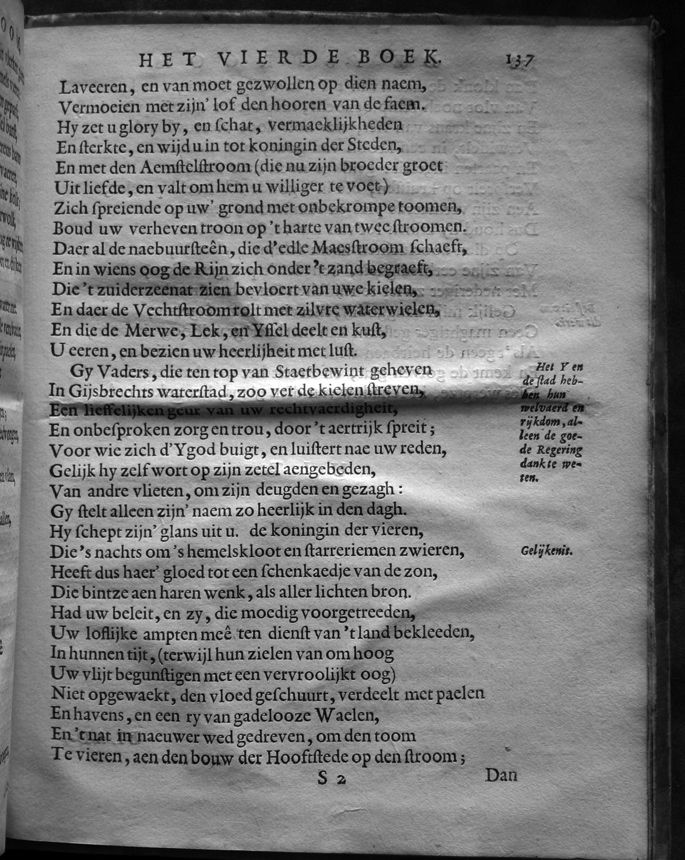 HET VIERDE BOEK. 137
Laveeren, en van moet gezwollen op dien naem,
Vermoeien met zijn' lof den hooren van de faem.
Hy zet u glory by, en ſchat, vermaeklijkheden
En ſterkte, en wijd u in tot koningin der Steden,
En met den Aemſtelſtroom (die nu zijn broeder groet
Uit liefde, en valt om hem u williger te voet)
Zich ſpreiende op uw' grond met onbekrompe toomen,
Boud uw verheven troon op 't harte van twee ſtroomen.
Daer al de naebuurſteên, die d'edle Maesſtroom ſchaeft,
En in wiens oog de Rijn zich onder 't zand begraeft,
Die 't zuiderzeenat zien bevloert van uwe kielen,
En daer de Vechtſtroom rolt met zilvre waterwielen,
En die de Merwe, Lek, en Yſſel deelt en kuſt,
U eeren, en bezien uw heerlijheit met luſt.
Gy Vaders, die ten top van Staetbewint geheven
In Gijsbrechts waterſtad, zoo ver de kielen ſtreven,
Een lieffelijken geur van uw rechtvaerdigheit,
En onbeſproken zorg en trou, door 't aertrijk ſpreit;
Voor wie zich d'Ygod buigt, en luiſtert nae uw reden,
Gelijk hy zelf wort op zijn zetel aengebeden,
Van andre vlieten, om zijn deugden en gezagh:
Gy ſtelt alleen zijn' naem zo heerlijk in den dagh.
Hy ſchept zijn' glans uit u. de koningin der vieren,
Die 's nachts om 's hemelskloot en ſtarreriemen zwieren,
Heeft dus haer' gloed tot een ſchenkaedje van de zon,
Die bintze aen haren wenk, als aller lichten bron.
Had uw beleit, en zy, die moedig voorgetreeden,
Uw loflijke ampten meê ten dienſt van 't land bekleeden,
In hunnen tijt, (terwijl hun zielen van om hoog
Uw vlijt begunſtigen met een vervroolijkt oog)
Niet opgewaekt, den vloed geſchuurt, verdeelt met paelen
En havens, en een ry van gadelooze Waelen,
En 't nat in naeuwer wed gedreven, om den toom
Te vieren, aen den bouw der Hooftſtede op den ſtroom;
S 2 Dan
Het Y en
de ſtad heb-
ben hun
welvaerd en
rijkdom, al-
leen de goe-
de Regering
dank te we-
ten.
Gelijkenis.